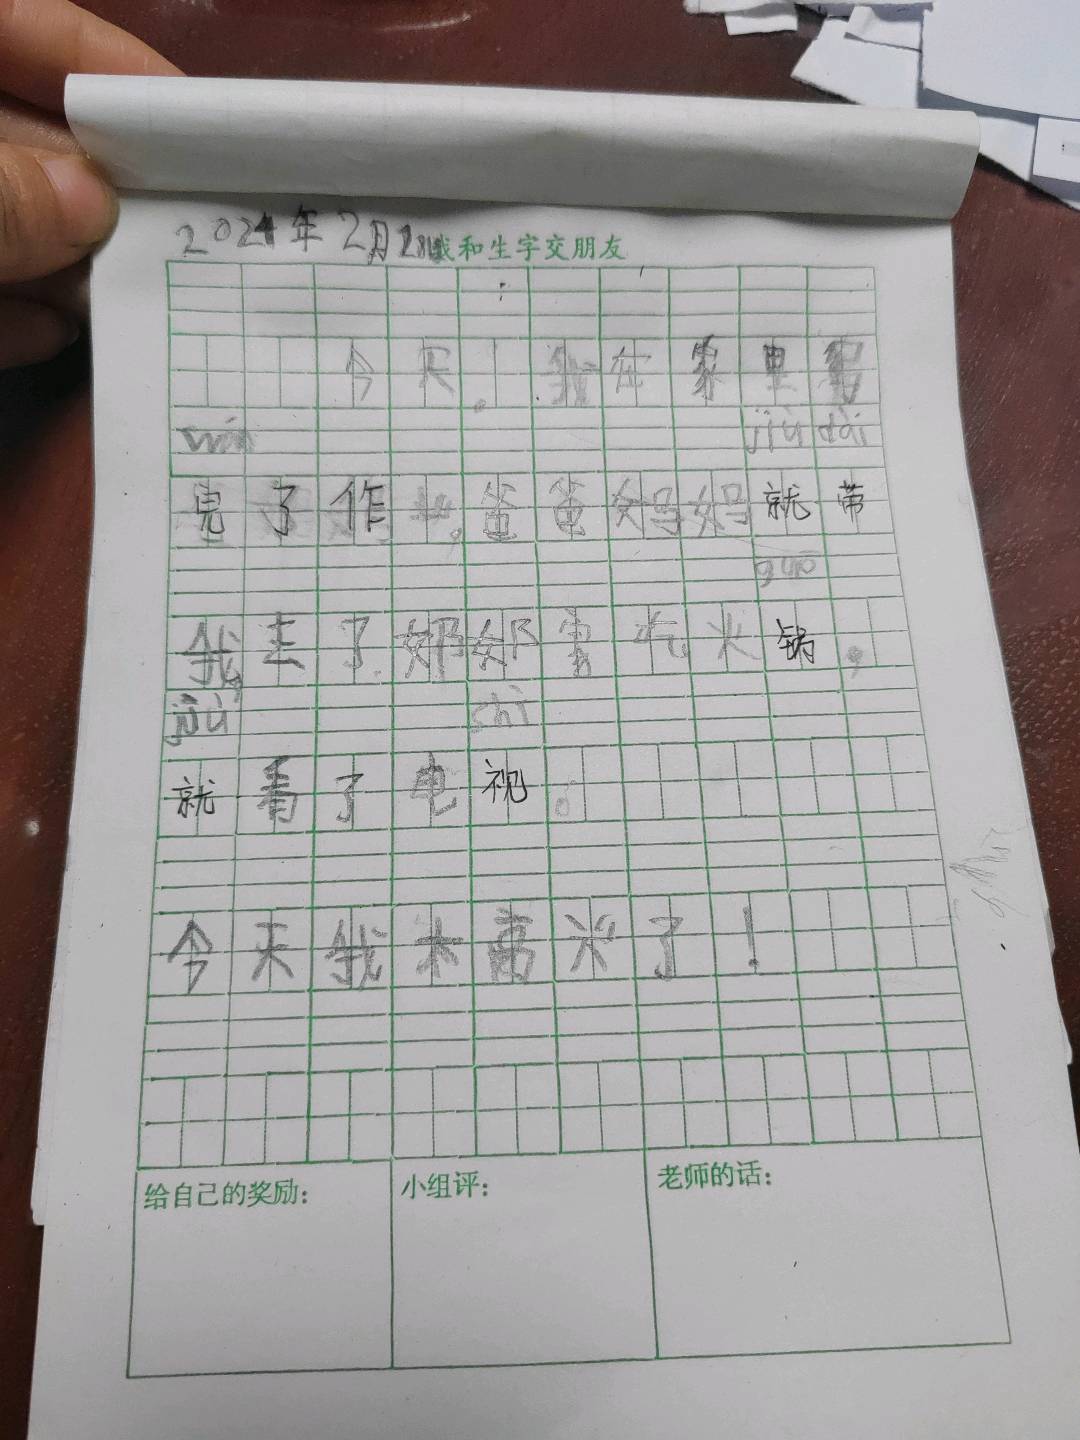 2024年2月28
我和生字交朋友
今天,我在家里写
wán jiù dài
完了作业,爸爸妈妈就带
guō
我去了奶奶家吃火锅,
jiù shì
就看了电视。
今天我太高兴了!
给自己的奖励:
小组评:
老师的话: